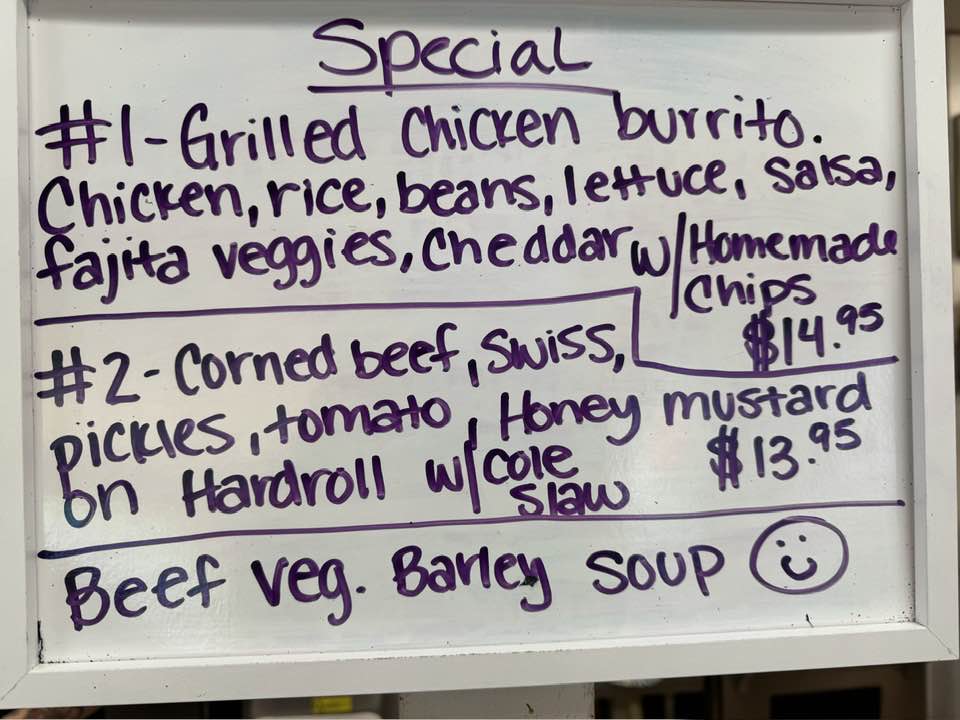 Special
#1-Grilled Chicken burrito.
Chicken, rice, beans, lettuce, salsa,
fajita veggies, Cheddar w/Homemade
Chips
$14.95
#2-Corned beef, Swiss,
pickles, tomato, Honey mustard
on Hardroll w/cole
slaw
$13.95
Beef veg. Barley soup